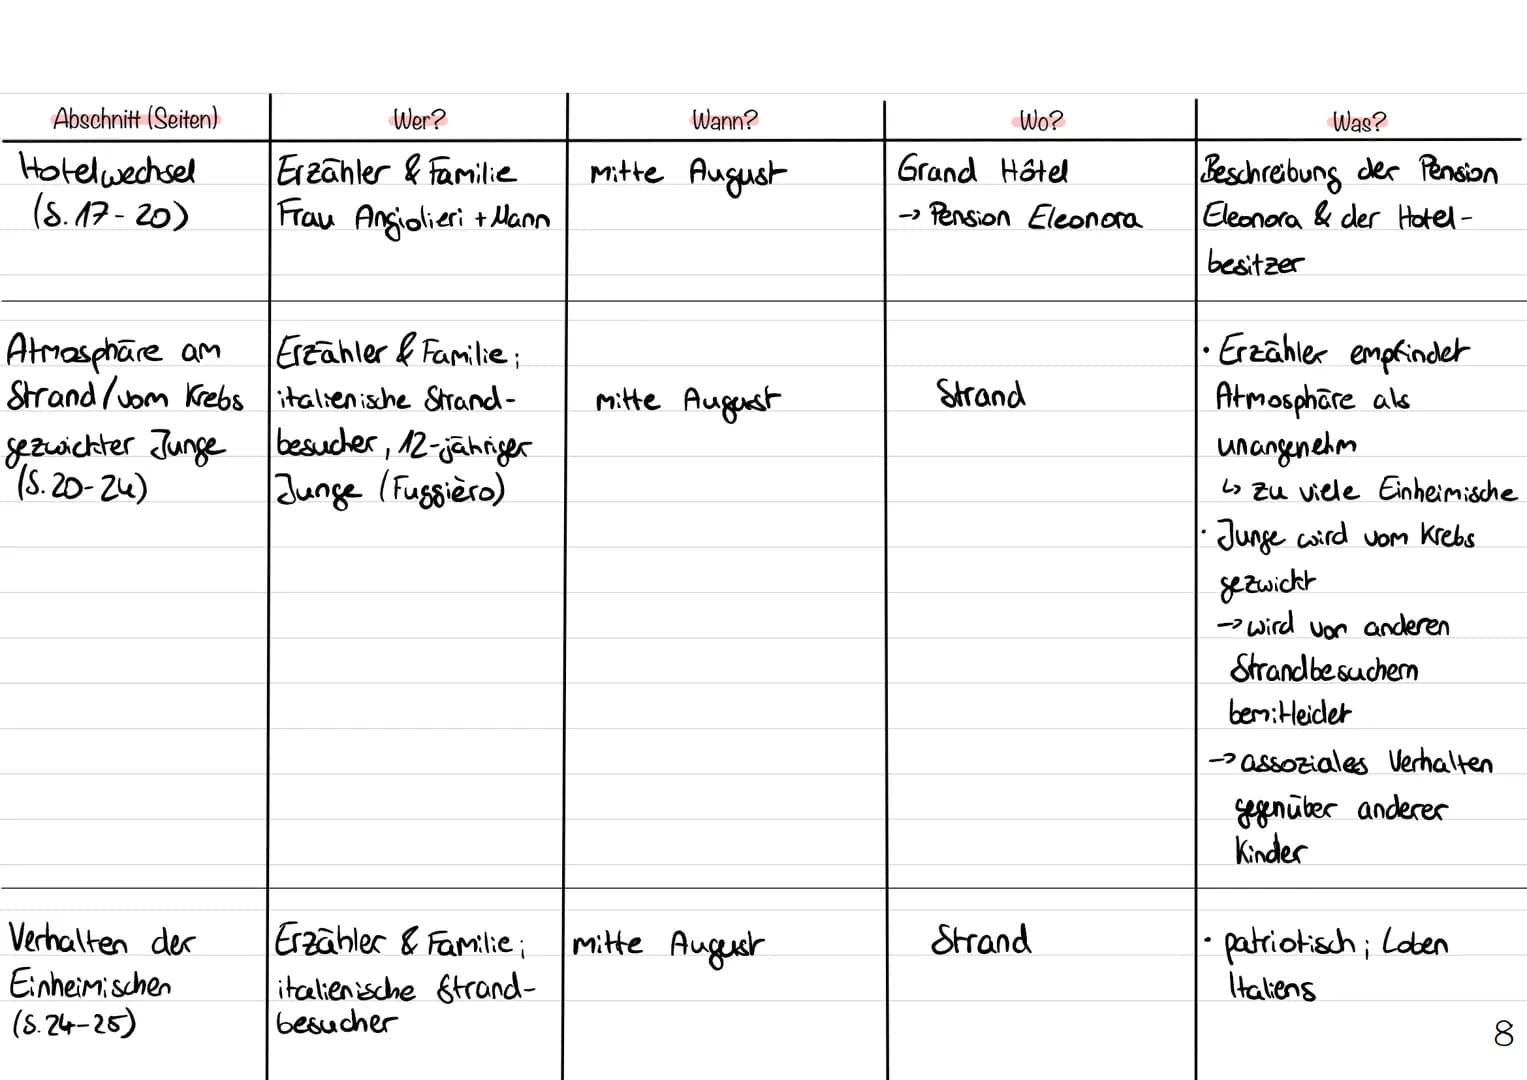 Abschnitt (Seiten)
Wer?
Wann?
Wo?
Was?
Hotelwechsel
(S. 17 - 20)
Erzähler & Familie
Frau Angiolieri + Mann
Mitte August
Grand Hôtel
-> Pension Eleonora
Beschreibung der Pension
Eleonora & der Hotel-
besitzer
Atmosphäre am
Strand/vom Krebs
gezwickter Junge
(S. 20-24)
Erzähler & Familie;
italienische Strand-
besucher, 12-jähriger
Junge (Fuggièro)
mitte August
Strand
· Erzähler empfindet
Atmosphäre als
unangenehm
↳ zu viele Einheimische
· Junge wird vom Krebs
gezwickt
-> wird von anderen
Strandbesuchern
bemitleidet
-> assoziales Verhalten
gegenüber anderer
Kinder
Verhalten der
Einheimischen
(S. 24-25)
Erzähler & Familie;
italienische Strand-
besucher
mitte August
Strand
· patriotisch; Loben
Italiens
8